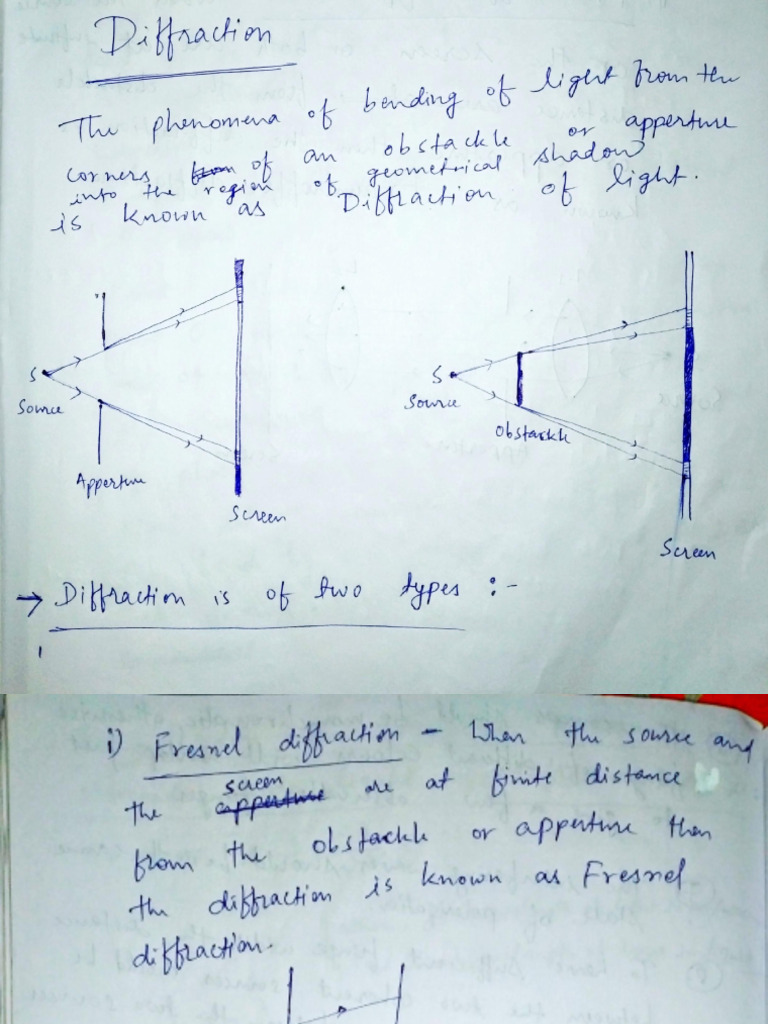 Diffraction
The phenomena of bending of light from the
corners of an obstackle or apperture
into the region of geometrical shadow
is known as Diffraction of light.
S
Source
Apperture
Screen
S
Source
Obstackle
Screen
→ Diffraction is of two types :-
i) Fresnel diffraction - When the source and
the screen are at finite distance
from the obstackle or apperture then
the diffraction is known as Fresnel
diffraction.